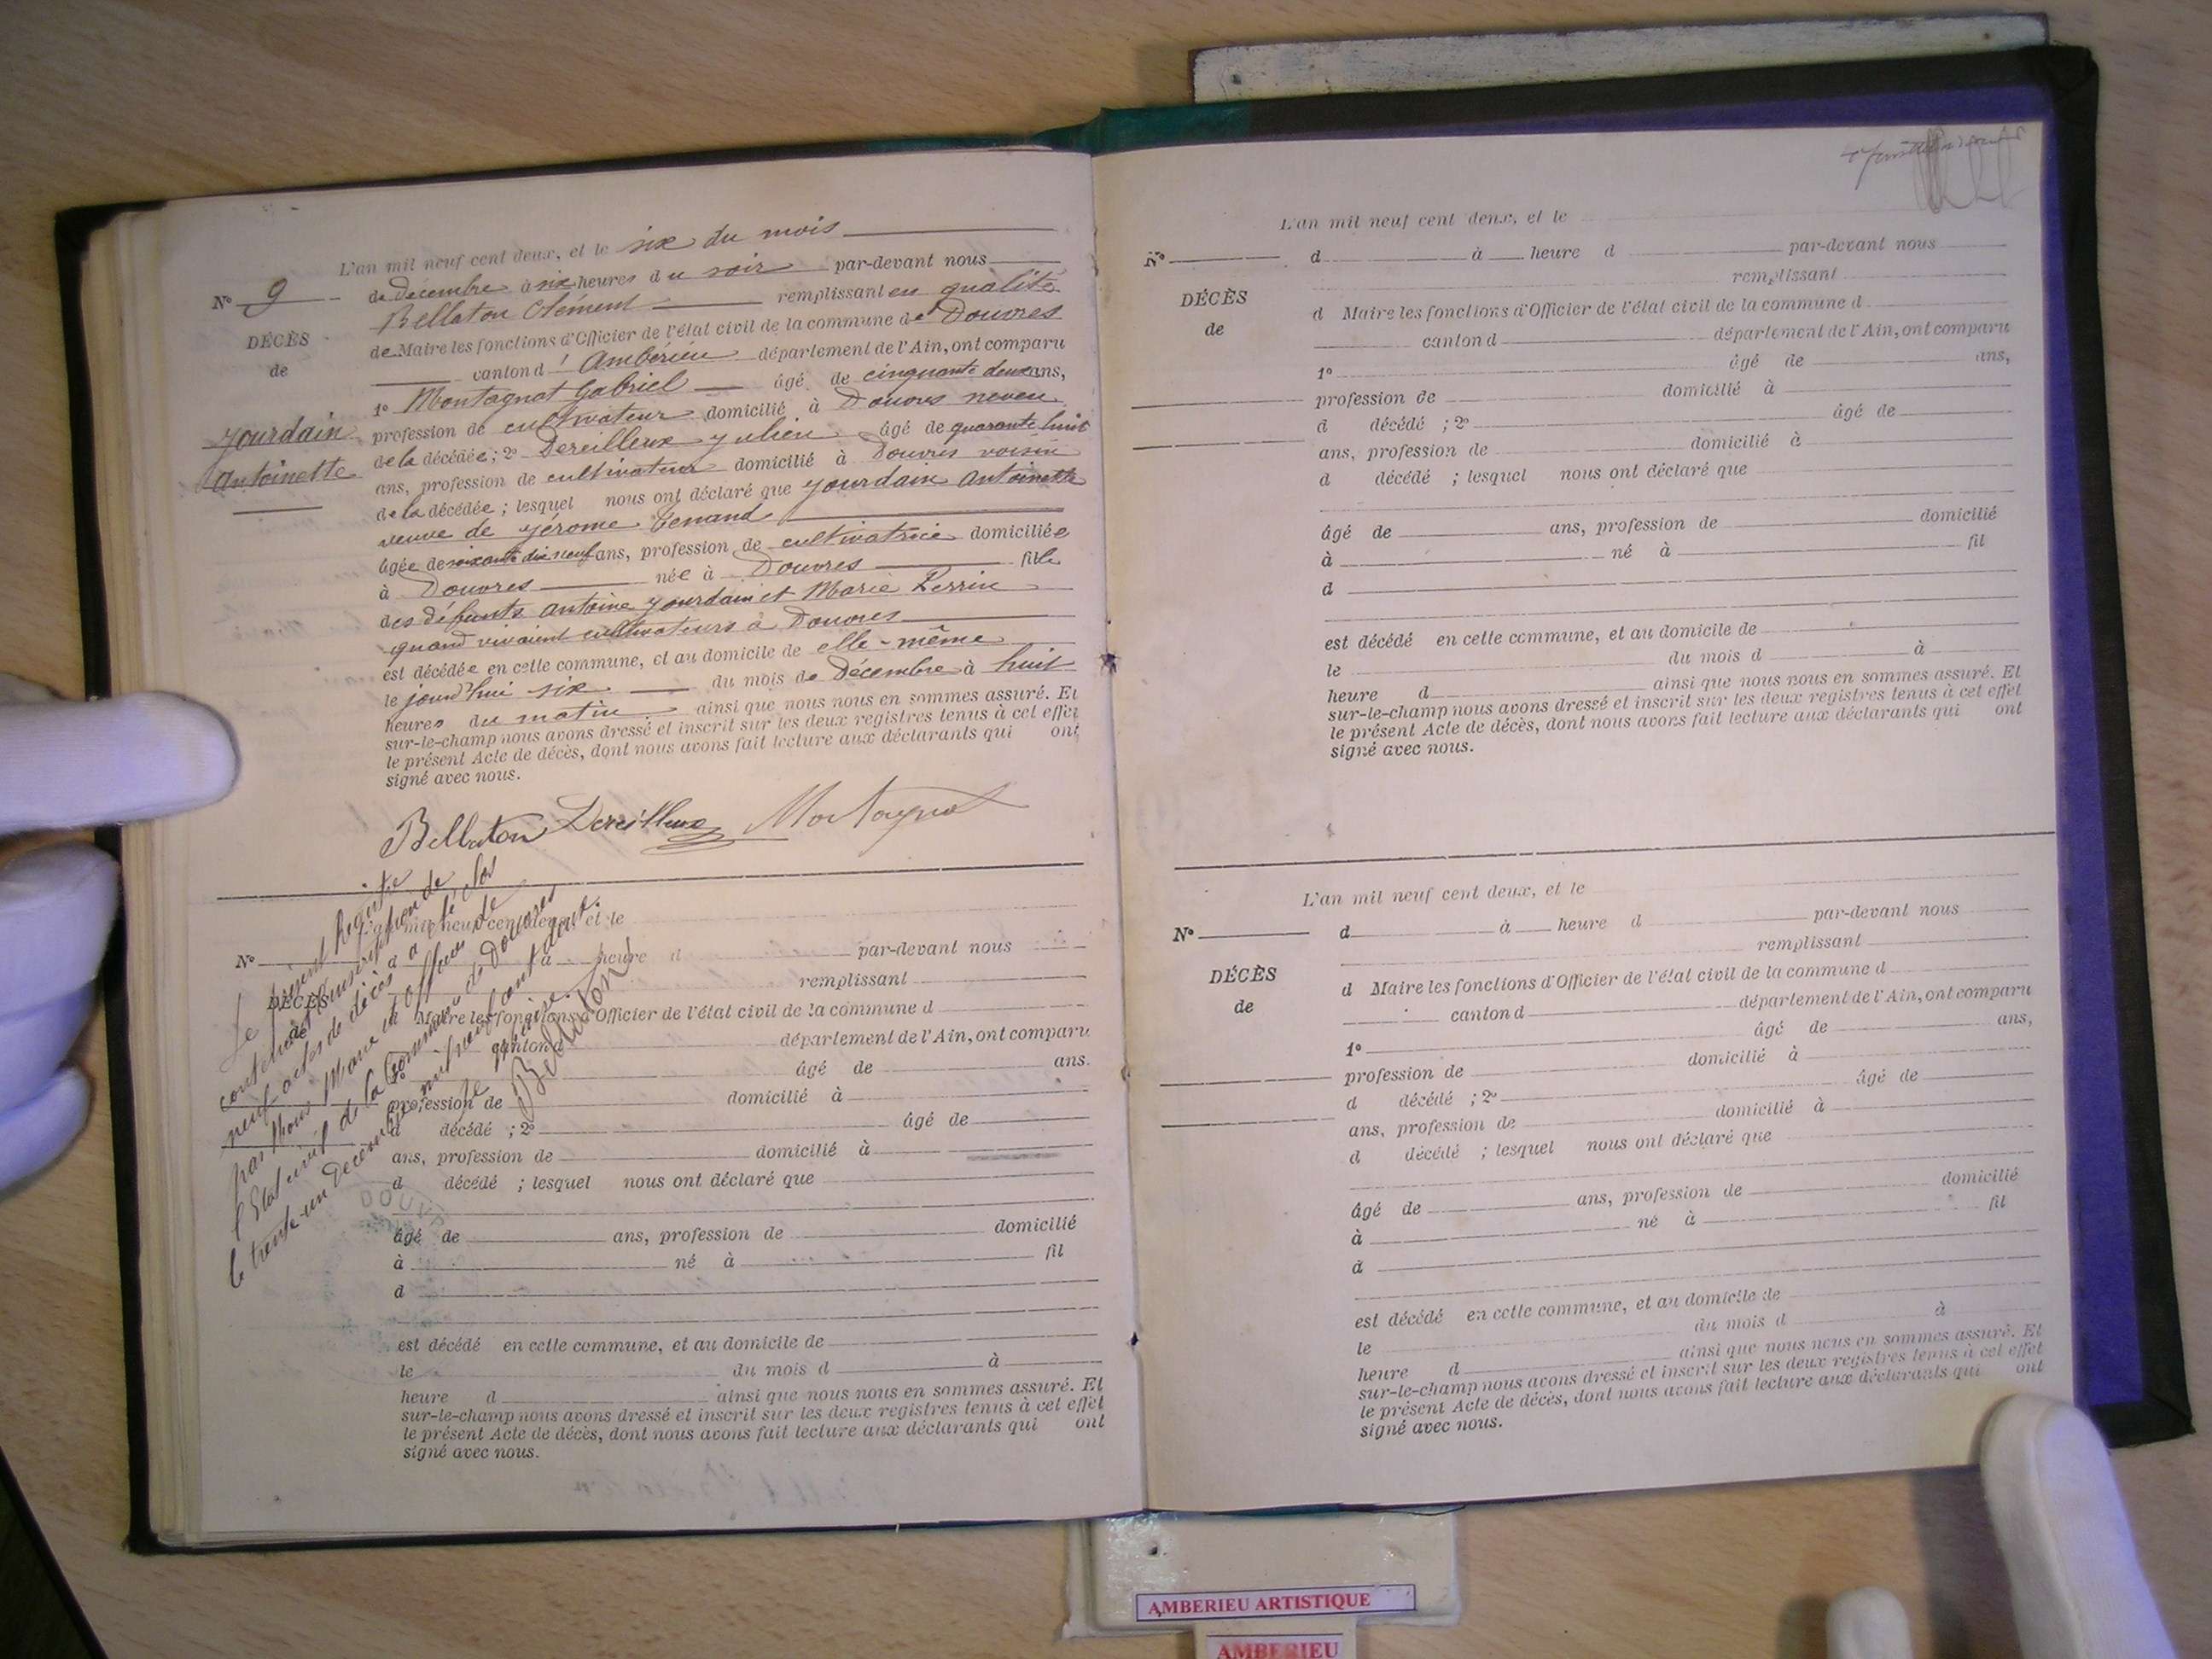 L'an mil neuf cent deux, et le six du mois
N° 9
de décembre à six heures du soir par-devant nous
Bellaton Clément remplissant en qualité
DÉCÈS
de
Jourdain
Antoinette
de Maire les fonctions d'Officier de l'état civil de la commune de Douvres
canton d'Ambérieu département de l'Ain, ont comparu
1° Montagnat Gabriel âgé de cinquante deux ans,
profession de cultivateur domicilié à Douvres neveu
de la décédée ; 2° Dereilleux Julien âgé de quarante huit
ans, profession de cultivateur domicilié à Douvres voisin
de la décédée ; lesquel nous ont déclaré que Jourdain Antoinette
veuve de Jérome Tenand
âgée de soixante dix neuf ans, profession de cultivatrice domiciliée
à Douvres née à Douvres fille
des défunts Antoine Jourdain et Marie Perrin
quand vivaient cultivateurs à Douvres
est décédée en cette commune, et au domicile de elle-même
le jourd'hui six du mois de décembre à huit
heures du matin ainsi que nous nous en sommes assuré. Et
sur-le-champ nous avons dressé et inscrit sur les deux registres tenus à cet effet
le présent Acte de décès, dont nous avons fait lecture aux déclarants qui ont
signé avec nous.
Bellaton Dereilleux Montagnat
Le présent Registre
contenant l'inscription de
neuf actes de décès a été clos
par Nous Maire et Officier de
l'Etat civil de la Commune de Douvres
le trente-un Décembre mil neuf cent deux.
Le Maire.
Bellaton
DOUVRES
mil neuf cent deux, et le
N° d à heure d par-devant nous
remplissant
DÉCÈS
de
Maire les fonctions d'Officier de l'état civil de la commune d
canton d département de l'Ain, ont comparu
1° âgé de ans.
profession de domicilié à
d décédé ; 2° âgé de
ans, profession de domicilié à
d décédé ; lesquel nous ont déclaré que
âgé de ans, profession de domicilié
à né à fil
d
est décédé en cette commune, et au domicile de
le du mois d à
heure d ainsi que nous nous en sommes assuré. Et
sur-le-champ nous avons dressé et inscrit sur les deux registres tenus à cet effet
le présent Acte de décès, dont nous avons fait lecture aux déclarants qui ont
signé avec nous.
L'an mil neuf cent deux, et le
N° d à heure d par-devant nous
remplissant
DÉCÈS
de
d Maire les fonctions d'Officier de l'état civil de la commune d
canton d département de l'Ain, ont comparu
1° âgé de ans,
profession de domicilié à
d décédé ; 2° âgé de
ans, profession de domicilié à
d décédé ; lesquel nous ont déclaré que
âgé de ans, profession de domicilié
à né à fil
d
est décédé en cette commune, et au domicile de
le du mois d à
heure d ainsi que nous nous en sommes assuré. Et
sur-le-champ nous avons dressé et inscrit sur les deux registres tenus à cet effet
le présent Acte de décès, dont nous avons fait lecture aux déclarants qui ont
signé avec nous.
L'an mil neuf cent deux, et le
N° d à heure d par-devant nous
remplissant
DÉCÈS
de
d Maire les fonctions d'Officier de l'état civil de la commune d
canton d département de l'Ain, ont comparu
1° âgé de ans,
profession de domicilié à
d décédé ; 2° âgé de
ans, profession de domicilié à
d décédé ; lesquel nous ont déclaré que
âgé de ans, profession de domicilié
à né à fil
d
est décédé en cette commune, et au domicile de
le du mois d à
heure d ainsi que nous nous en sommes assuré. Et
sur-le-champ nous avons dressé et inscrit sur les deux registres tenus à cet effet
le présent Acte de décès, dont nous avons fait lecture aux déclarants qui ont
signé avec nous.
AMBERIEU ARTISTIQUE
AMBERIEU